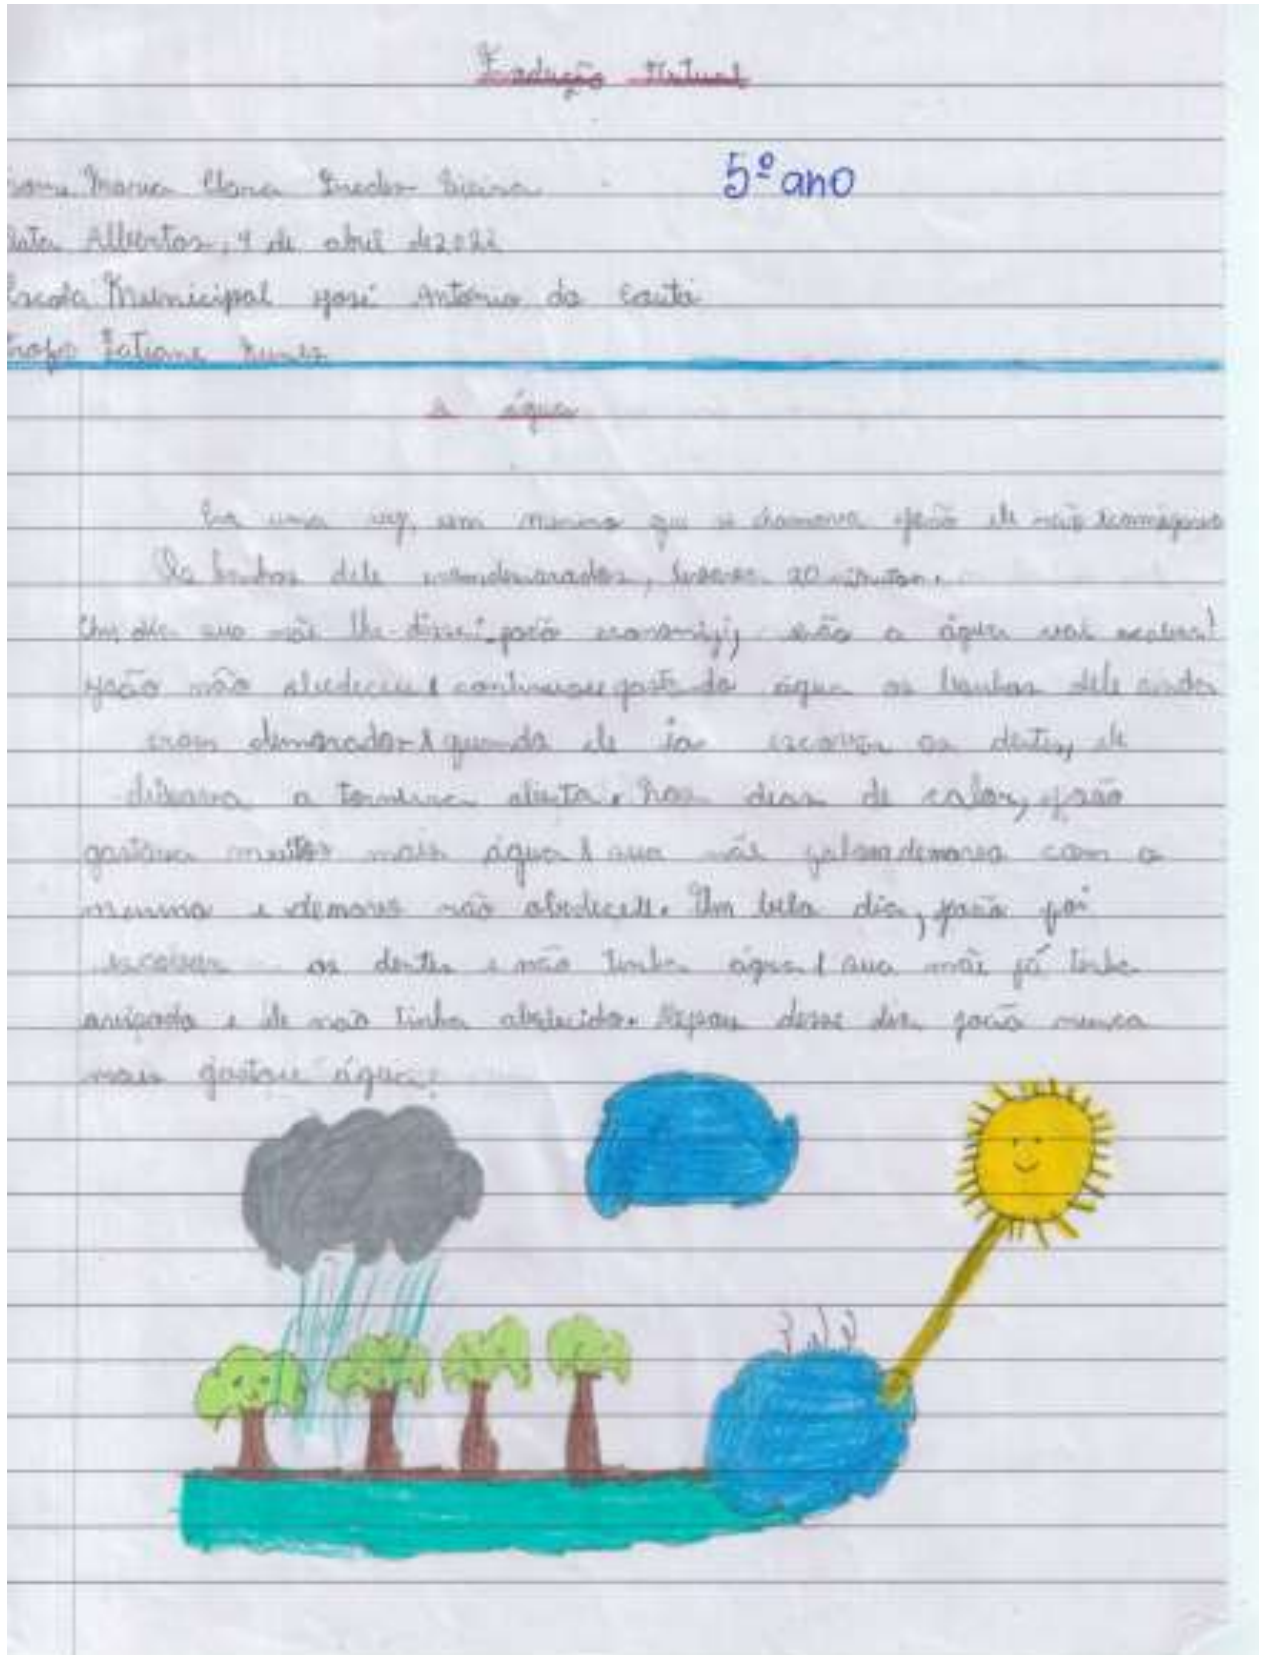 Produção Textual
Maria Clara Guedes Vieira 5º ano
Albertos, 4 de abril de 2022
Escola Municipal José Antônio da
Profª Tatiane Nunes
A água
Era uma vez, um menino que se chamava João ele não
Os banhos dele eram demorados, 20 minutos.
Um dia sua mãe lhe disse: João economize, senão a água vai acabar!
João não obedeceu e continuou gastando água os banhos dele ainda
eram demorados e quando ele ia escovar os dentes, ele
deixava a torneira aberta. Nos dias de calor, João
gastava muitos mais água e sua mãe com o
menino e não obedece. Um belo dia, João foi
escovar os dentes e não tinha água e sua mãe já tinha
avisado e ele não tinha obedecido. Depois desse dia João nunca
mais gastou água.